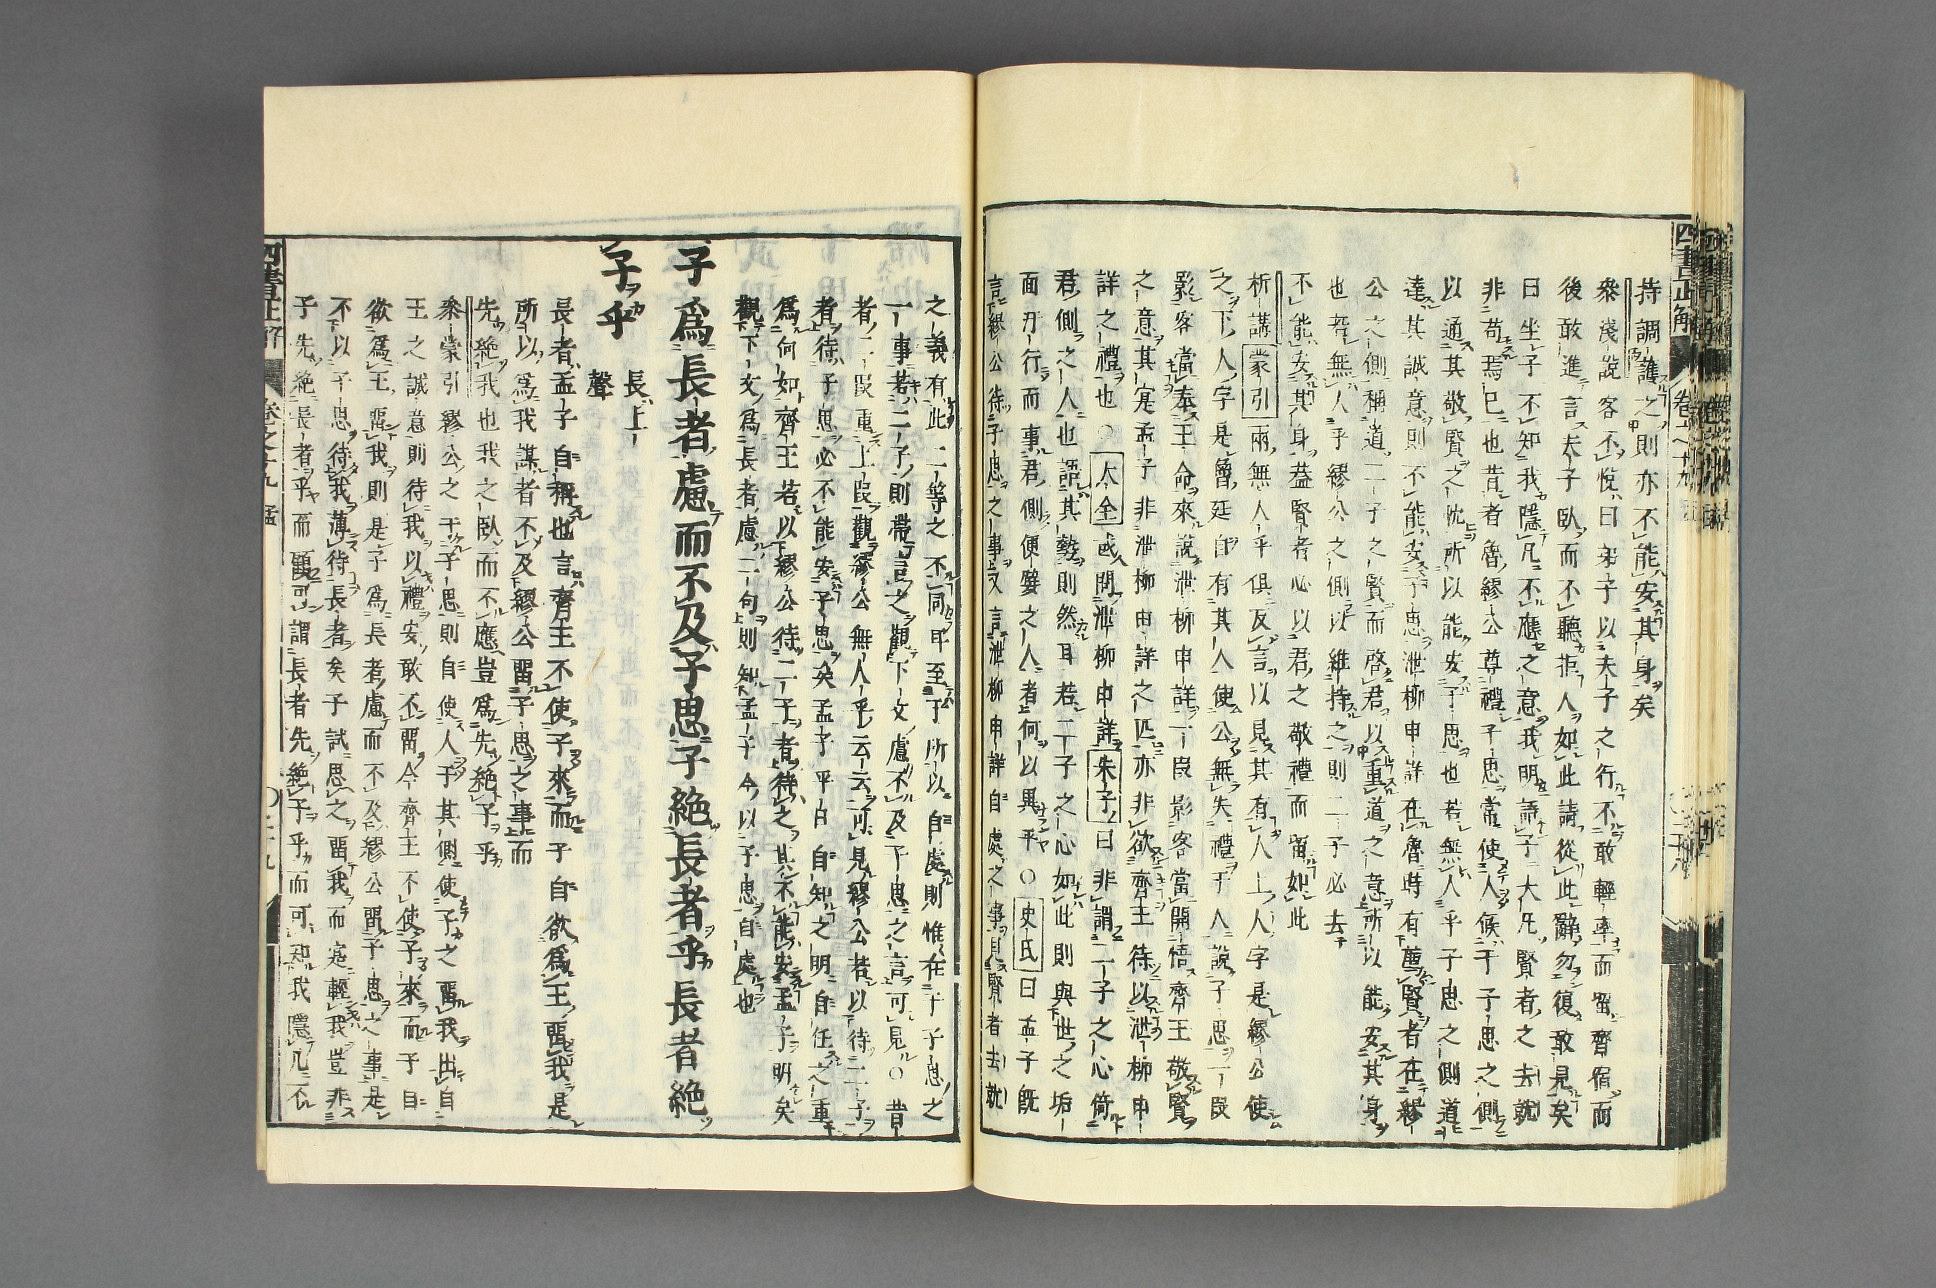 持調護之則亦不能安其身矣
參淺說客不悅曰弟子以夫子之行不敢輕率而留齊宿而
後敢進言夫子臥而不聽拒人如此請從此辭勿復敢見矣
曰坐子不知我隱几不應之意我明語子大凡賢者之去就
非苟焉已也昔者魯繆公尊禮子思常使人候于子思之側
以通其敬賢之忱所以能安子思也若無人乎子思之側道
達其誠意則不能安子思泄柳申詳在魯時有薦賢者在繆
公之側稱道二子之賢而啓君以重道之意所以能安其身
也若無人乎繆公之側以維持之則二子必去
不能安其身蓋賢者必以君之敬禮而留如此
析講蒙引兩無人乎俱反言以見其有人上人字是繆公使
之下人字是魯廷自有其人使公無失禮于人說子思一段
影客當奉王命來說泄柳申詳一段影客當開悟齊王敬賢
之意其寔孟子非泄柳申詳之匹亦非欲齊王待以泄柳申
詳之禮也○大全或問泄柳申詳朱子曰非謂二子之心倚
君側之人也語其勢則然耳若二子之心如此則與世之垢
面汙行而事君側便嬖之人者何以異乎○史氏曰孟子既
言繆公待子思之事又言泄柳申詳自處之事見賢者去就
之義有此二等之不同耳至于所以自處則惟在于子思之
一事若二子則帶言之觀下文慮不及子思之言可見○昔
者二段重上段觀繆公無人乎云云可見繆公若以待二子
者待子思必不能安子思矣孟子平日自知之明自任之重
爲何如齊王若以繆公待二子者待之其不能安孟子明矣
觀下文爲長者慮二句則知孟子今以子思自處也
子爲長者慮而不及子思子絕長者乎長者絕
子乎
長上
聲
長者孟子自稱也言齊王不使子來而子自欲爲王留我是
所以爲我謀者不及繆公留子思之事而
先絕我也我之臥而不應豈爲先絕子乎
參蒙引繆公之于子思則自使人于其側使子之留我出自
王之誠意則待我以禮安敢不留今齊王不使子來而子自
欲爲王留我則是子爲長者慮而不及繆公留子思之事是
不以子思待我薄待長者矣子試思之留我而寔輕我豈非
子先絕長者乎而顧可謂長者先絕子乎而可知我隱几不
四書正解
卷之十九 孟